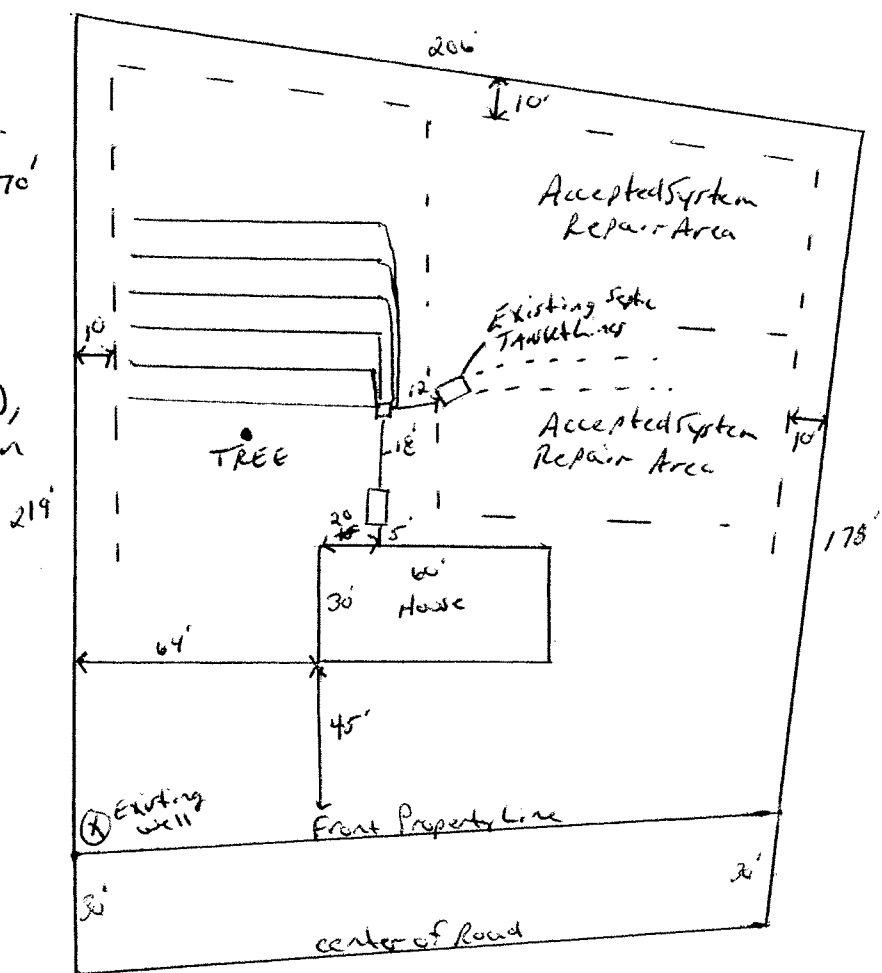 206'
10'
70'
Accepted System
Repair Area
Existing Septic
TANK & Lines
10'
12'
Accepted System
Repair Area
10'
TREE
18'
219'
178'
20
5'
60'
House
30'
64'
45'
Existing
well
Front Property Line
30'
30'
center of Road